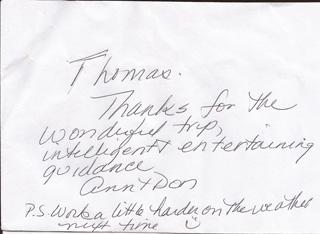 Thomas.
Thanks for the
wonderful trip,
intelligent & entertaining
guidance
Ann + Don
P.S. Work a little harder on the weather
next time